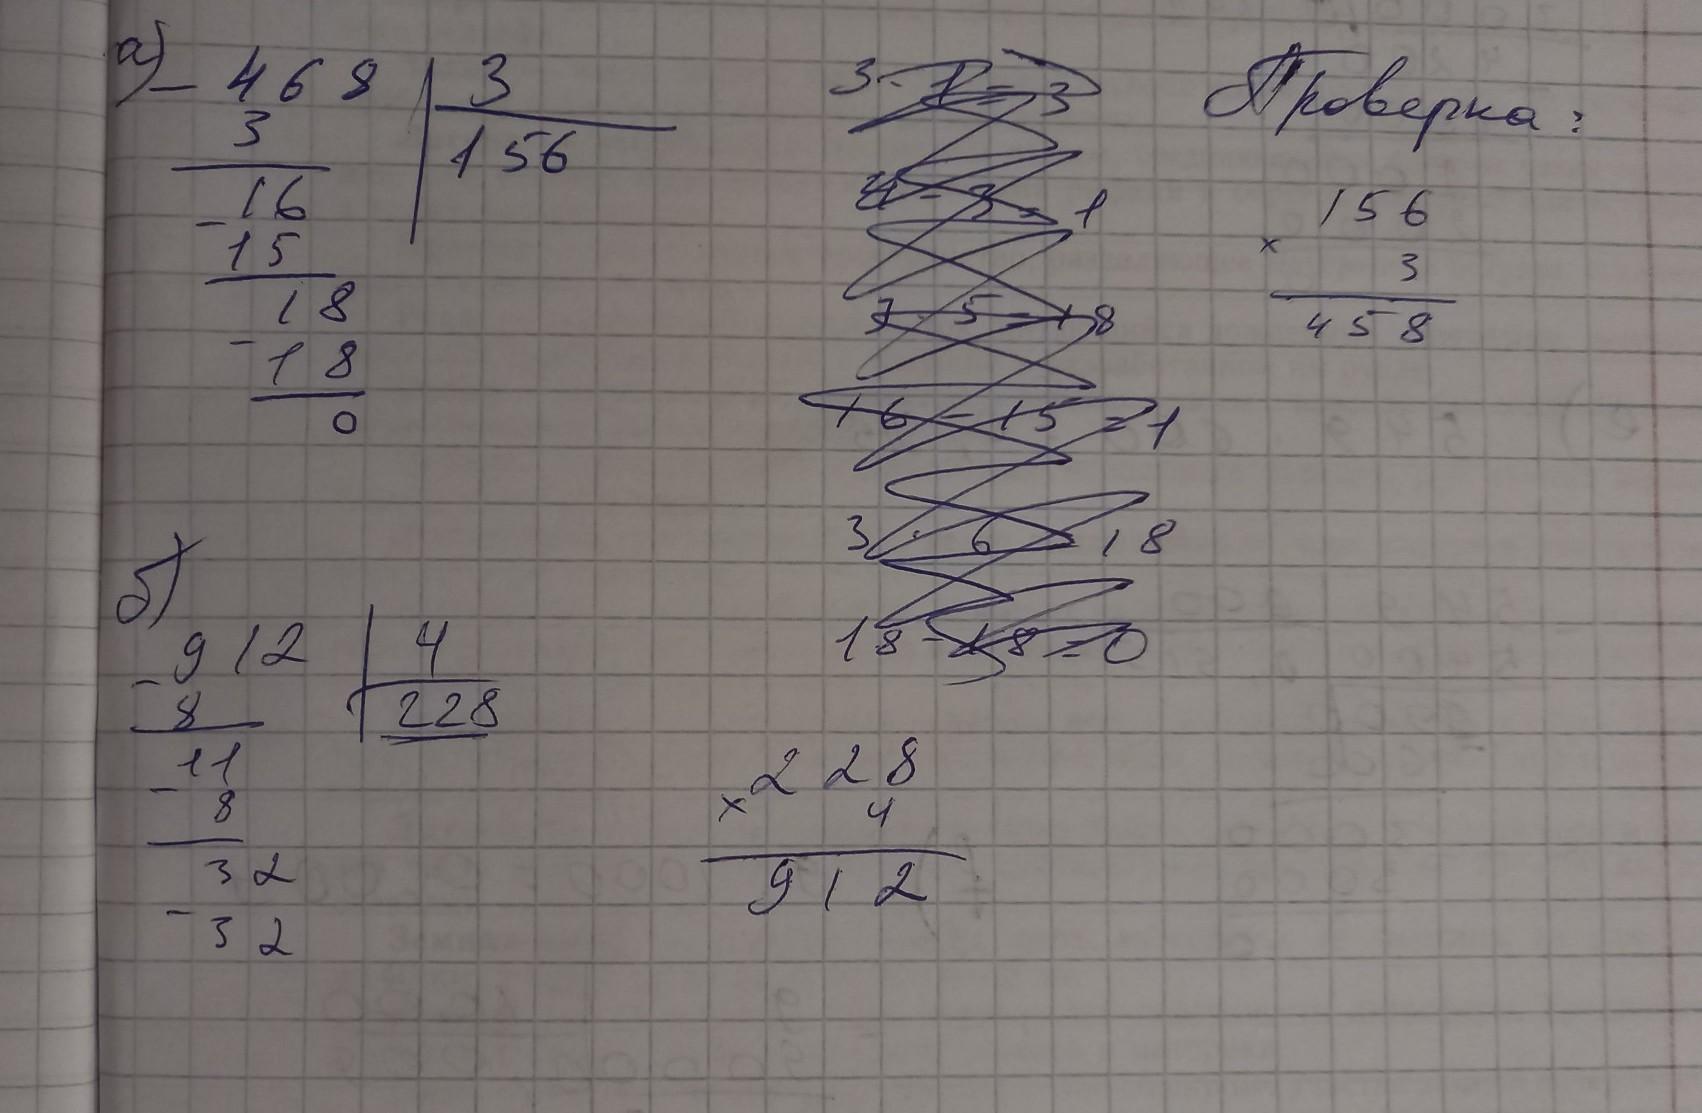 а) - 468 3
3 156
16
- 15
18
- 18
0
3 · 1 = 3
4 - 3 = 1
3 · 5 = 18
16 - 15 = 1
3 · 6 18
18 - 18 = 0
Проверка:
156
× 3
458
б)
- 912 4
8 228
- 11
8
32
- 32
228
× 4
912